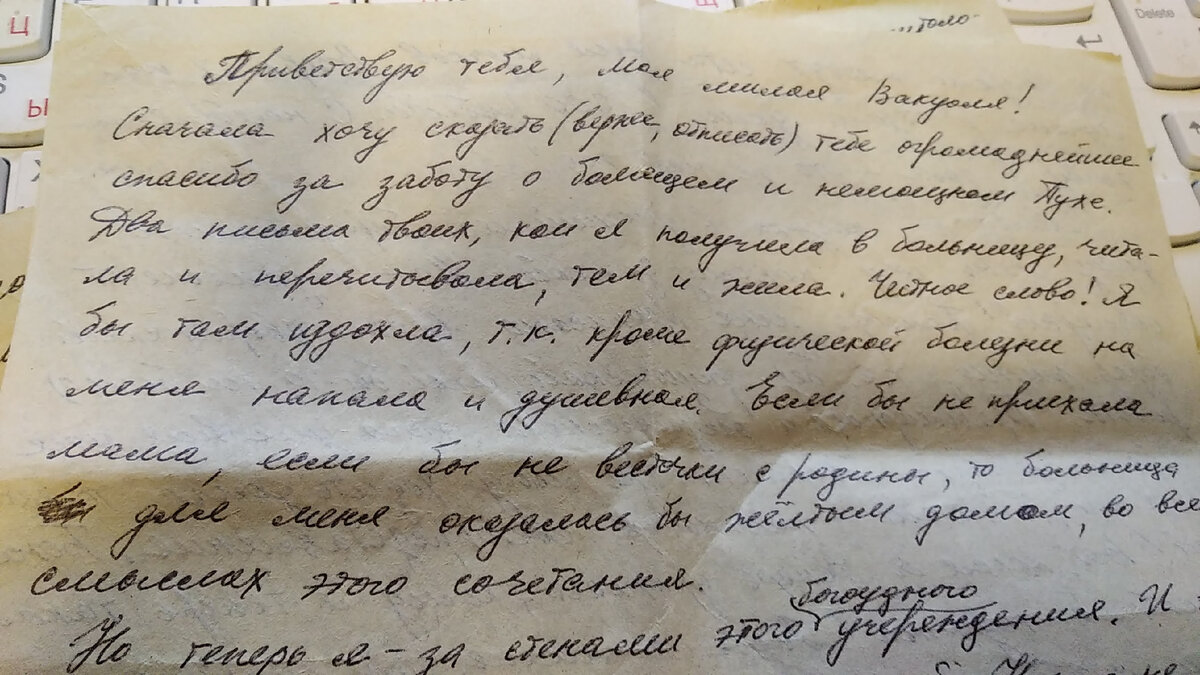 ...толо-
Приветствую тебя, моя милая Вакуоля!
Сначала хочу сказать (вернее, отписать) тебе огромаднейшее
спасибо за заботу о болящем и немощном Пухе.
Два письма твоих, кои я получила в больницу, чита-
ла и перечитывала, тем и жила. Честное слово! Я
бы там издохла, т.к. кроме физической болезни на
меня напала и душевная. Если бы не приехала
мама, если бы не весточки с родины, то больница
для меня оказалась бы жёлтым домом, во все
смыслах этого сочетания.
богоудного
Но теперь я – за стенами этого учереждения. И
Delete
Ц
Ы
S